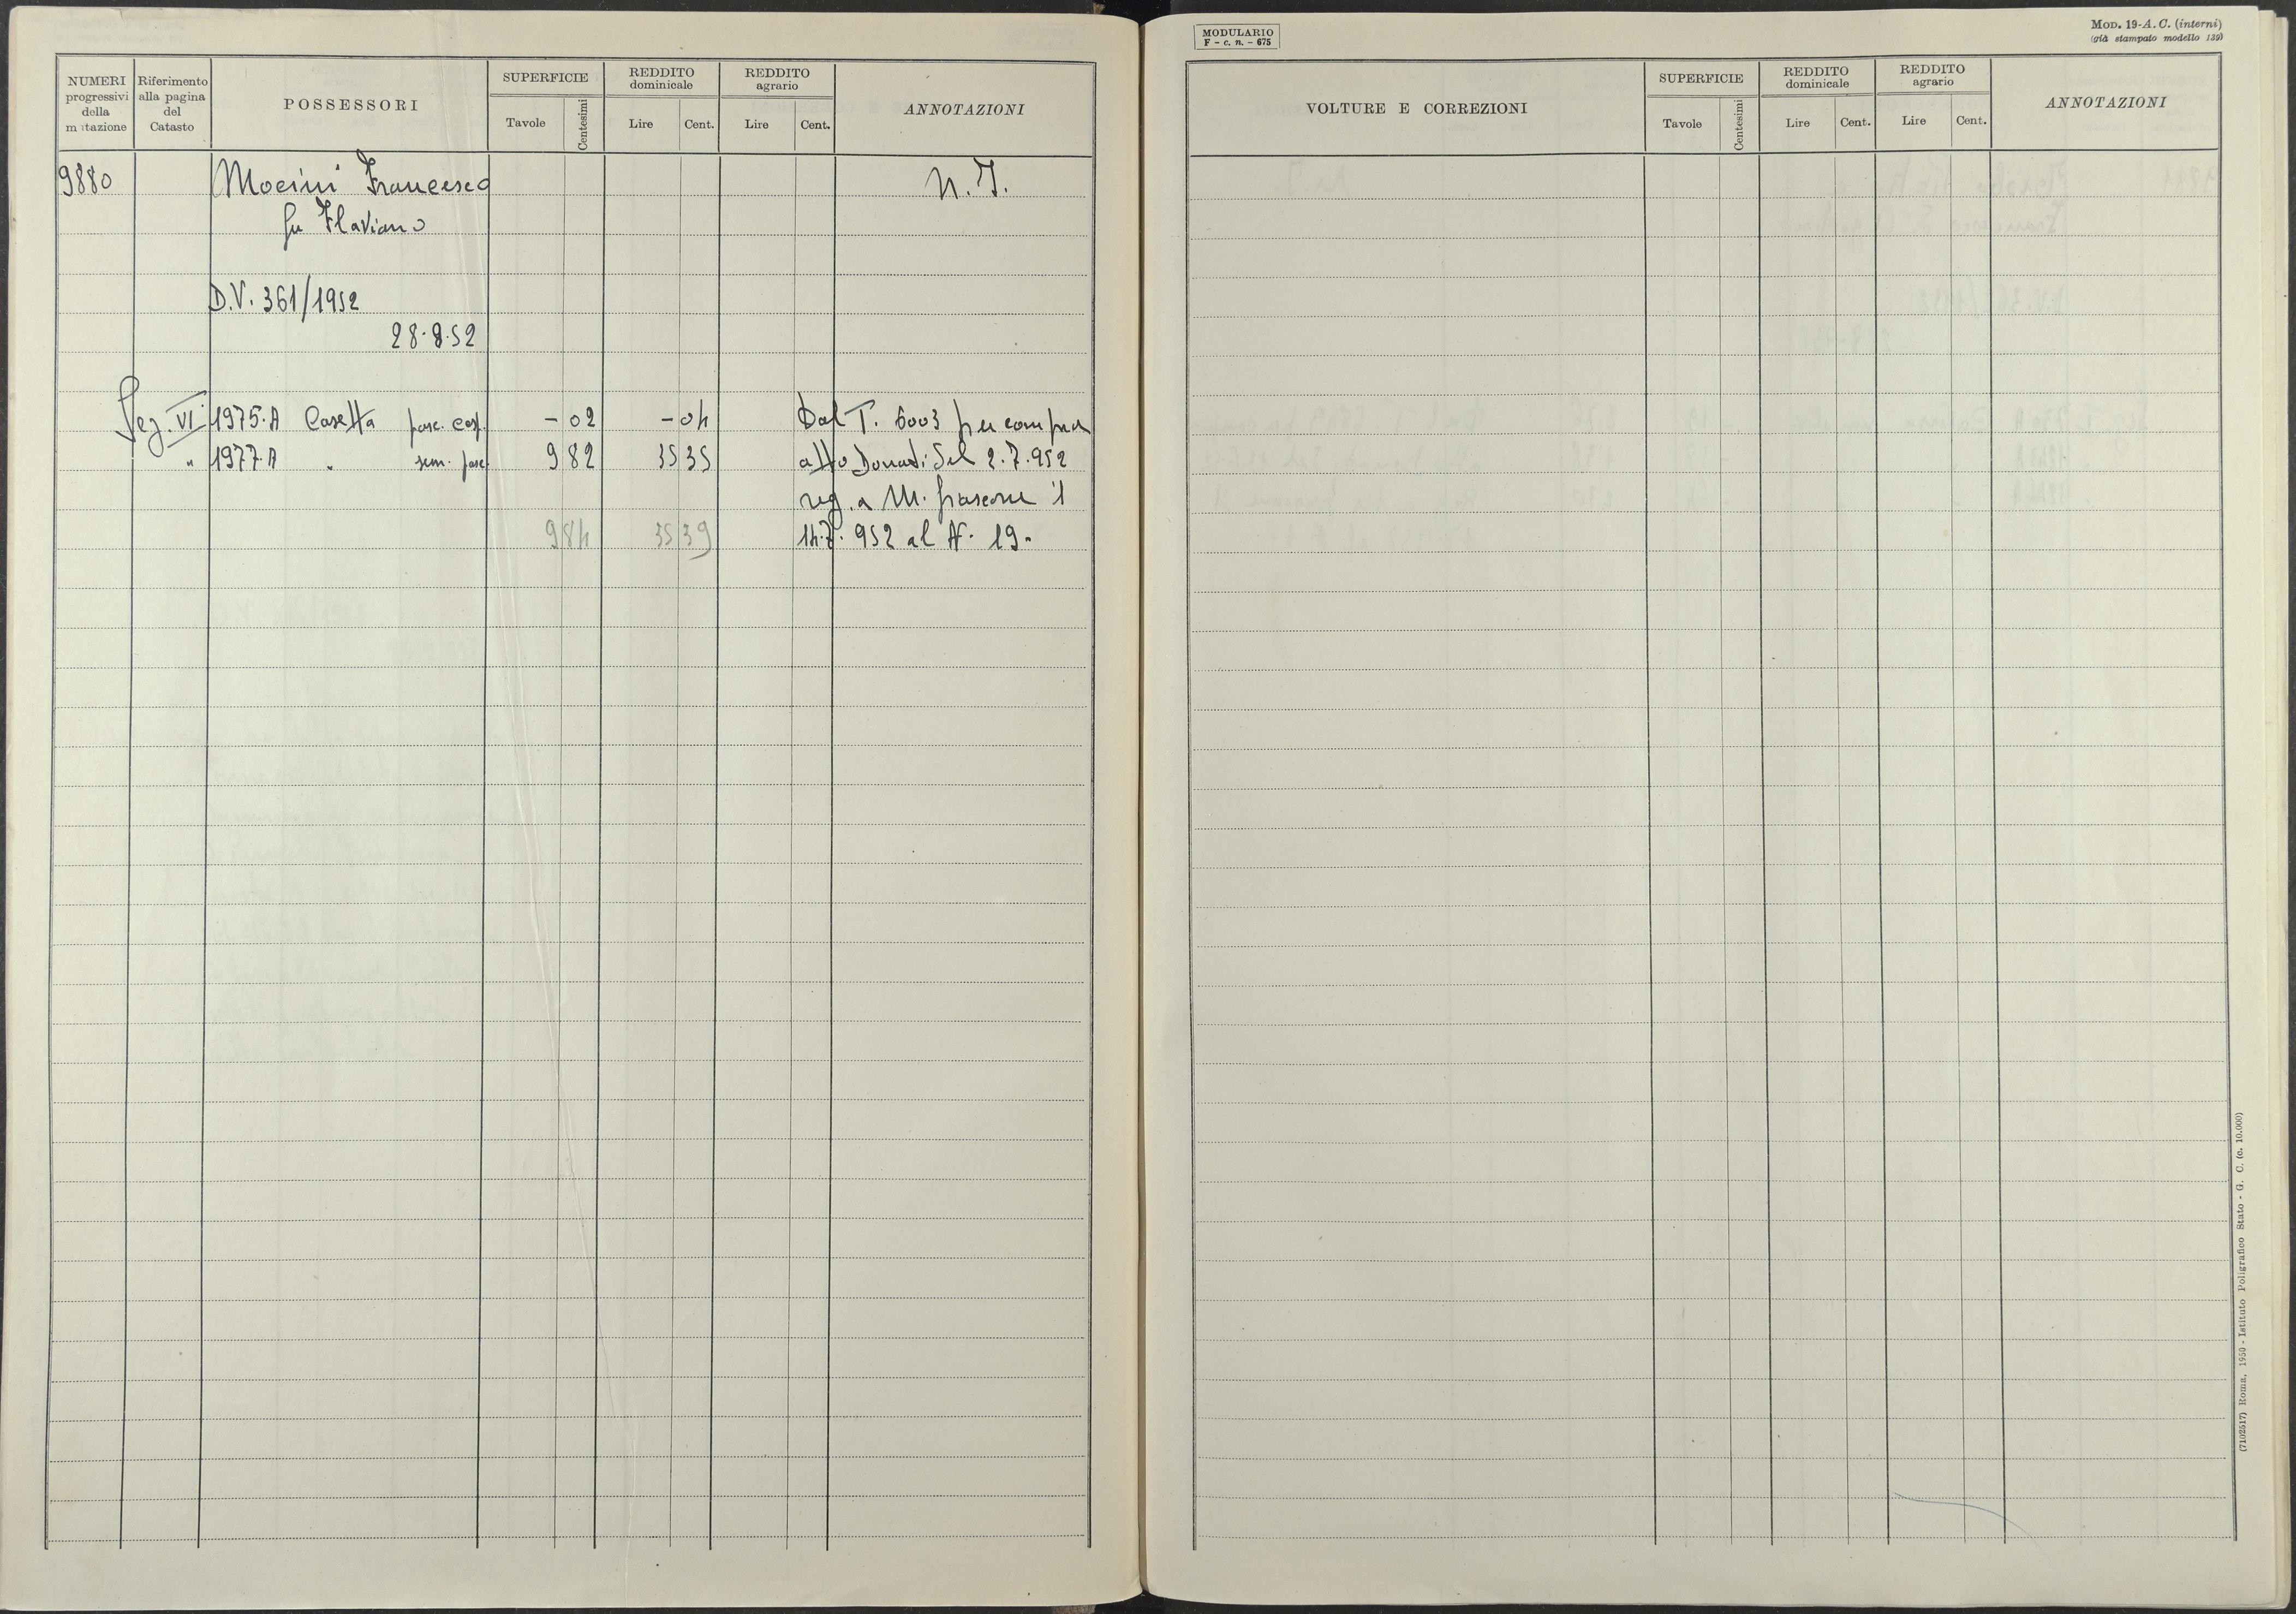 NUMERI progressivi della m tazione
Riferimento alla pagina del Catasto
POSSESSORI
SUPERFICIE
Tavole
Centesimi
REDDITO dominicale
Lire
Cent.
REDDITO agrario
Lire
Cent.
ANNOTAZIONI
9880 Mocini Francesco N.I.
fu Flaviano
D.V. 361/1952
28.8.52
Sez. VI 1975.A Casetta pasc. cesp. - 02 - 04 Dal T. 6003 per compra
" 1977.A " sem. pasc. 9 82 35 35 atto Donati del 2.7.952
reg. a M. fiascone il
9 84 35 39 14.7.952 al N. 19.
MODULARIO
F - c. n. - 675
MOD. 19-A. C. (interni)
(già stampato modello 139)
VOLTURE E CORREZIONI
SUPERFICIE
Tavole
Centesimi
REDDITO dominicale
Lire
Cent.
REDDITO agrario
Lire
Cent.
ANNOTAZIONI
(7102517) Roma, 1950 - Istituto Poligrafico Stato - G. C. (c. 10.000)